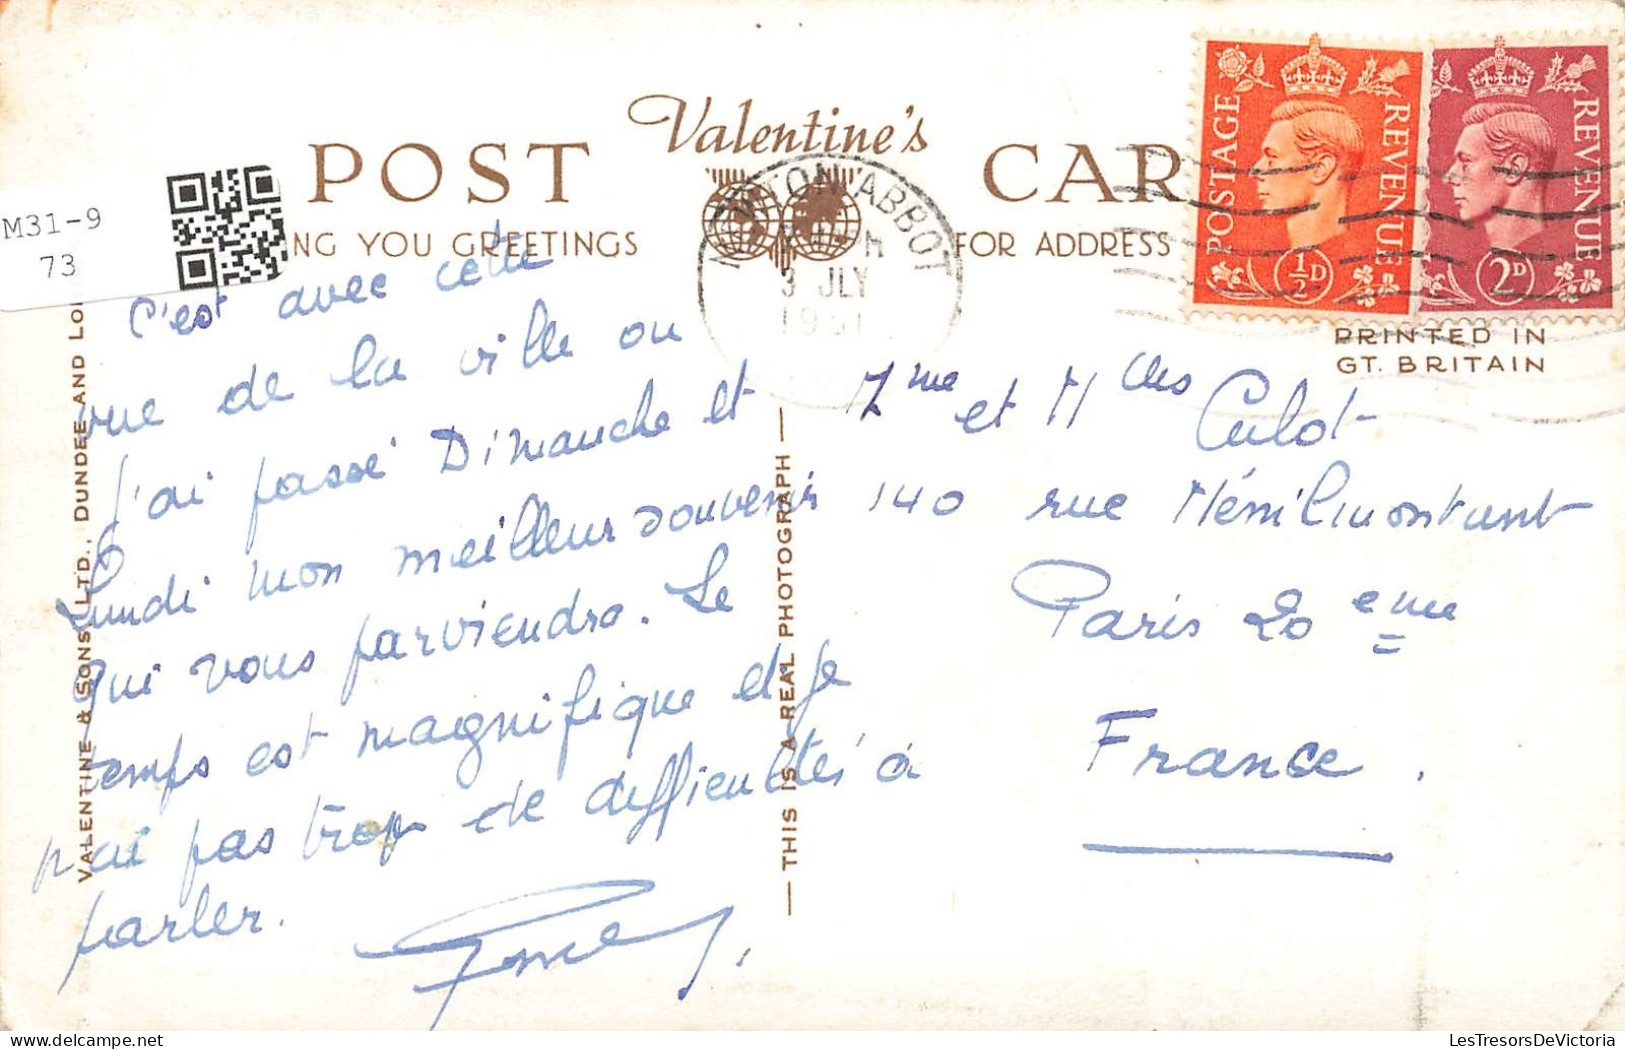 POST Valentine's CAR
M31-9
73
NG YOU GREETINGS
FOR ADDRESS
NEWTON ABBOT
3 JLY
1951
POSTAGE REVENUE
½D
REVENUE
2D
PRINTED IN
GT. BRITAIN
C'est avec cette
vue de la ville ou
j'ai passé Dimanche et
Lundi mon meilleur souvenir
qui vous parviendra. Le
temps est magnifique et je
n'ai pas trop de difficultés à
parler.
Mme et Mlles Culot
140 rue Ménilmontant
Paris 20 eme
France.
VALENTINE & SONS, LTD., DUNDEE AND LO
— THIS IS A REAL PHOTOGRAPH —
LesTresorsDeVictoria